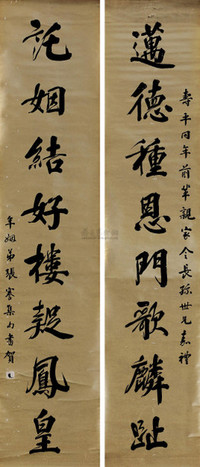 壽平同年前輩親家令長孫世兄嘉禮
邁德種恩門歌麟趾
託姻結好樓鳳皇
年姻弟張謇集句書賀